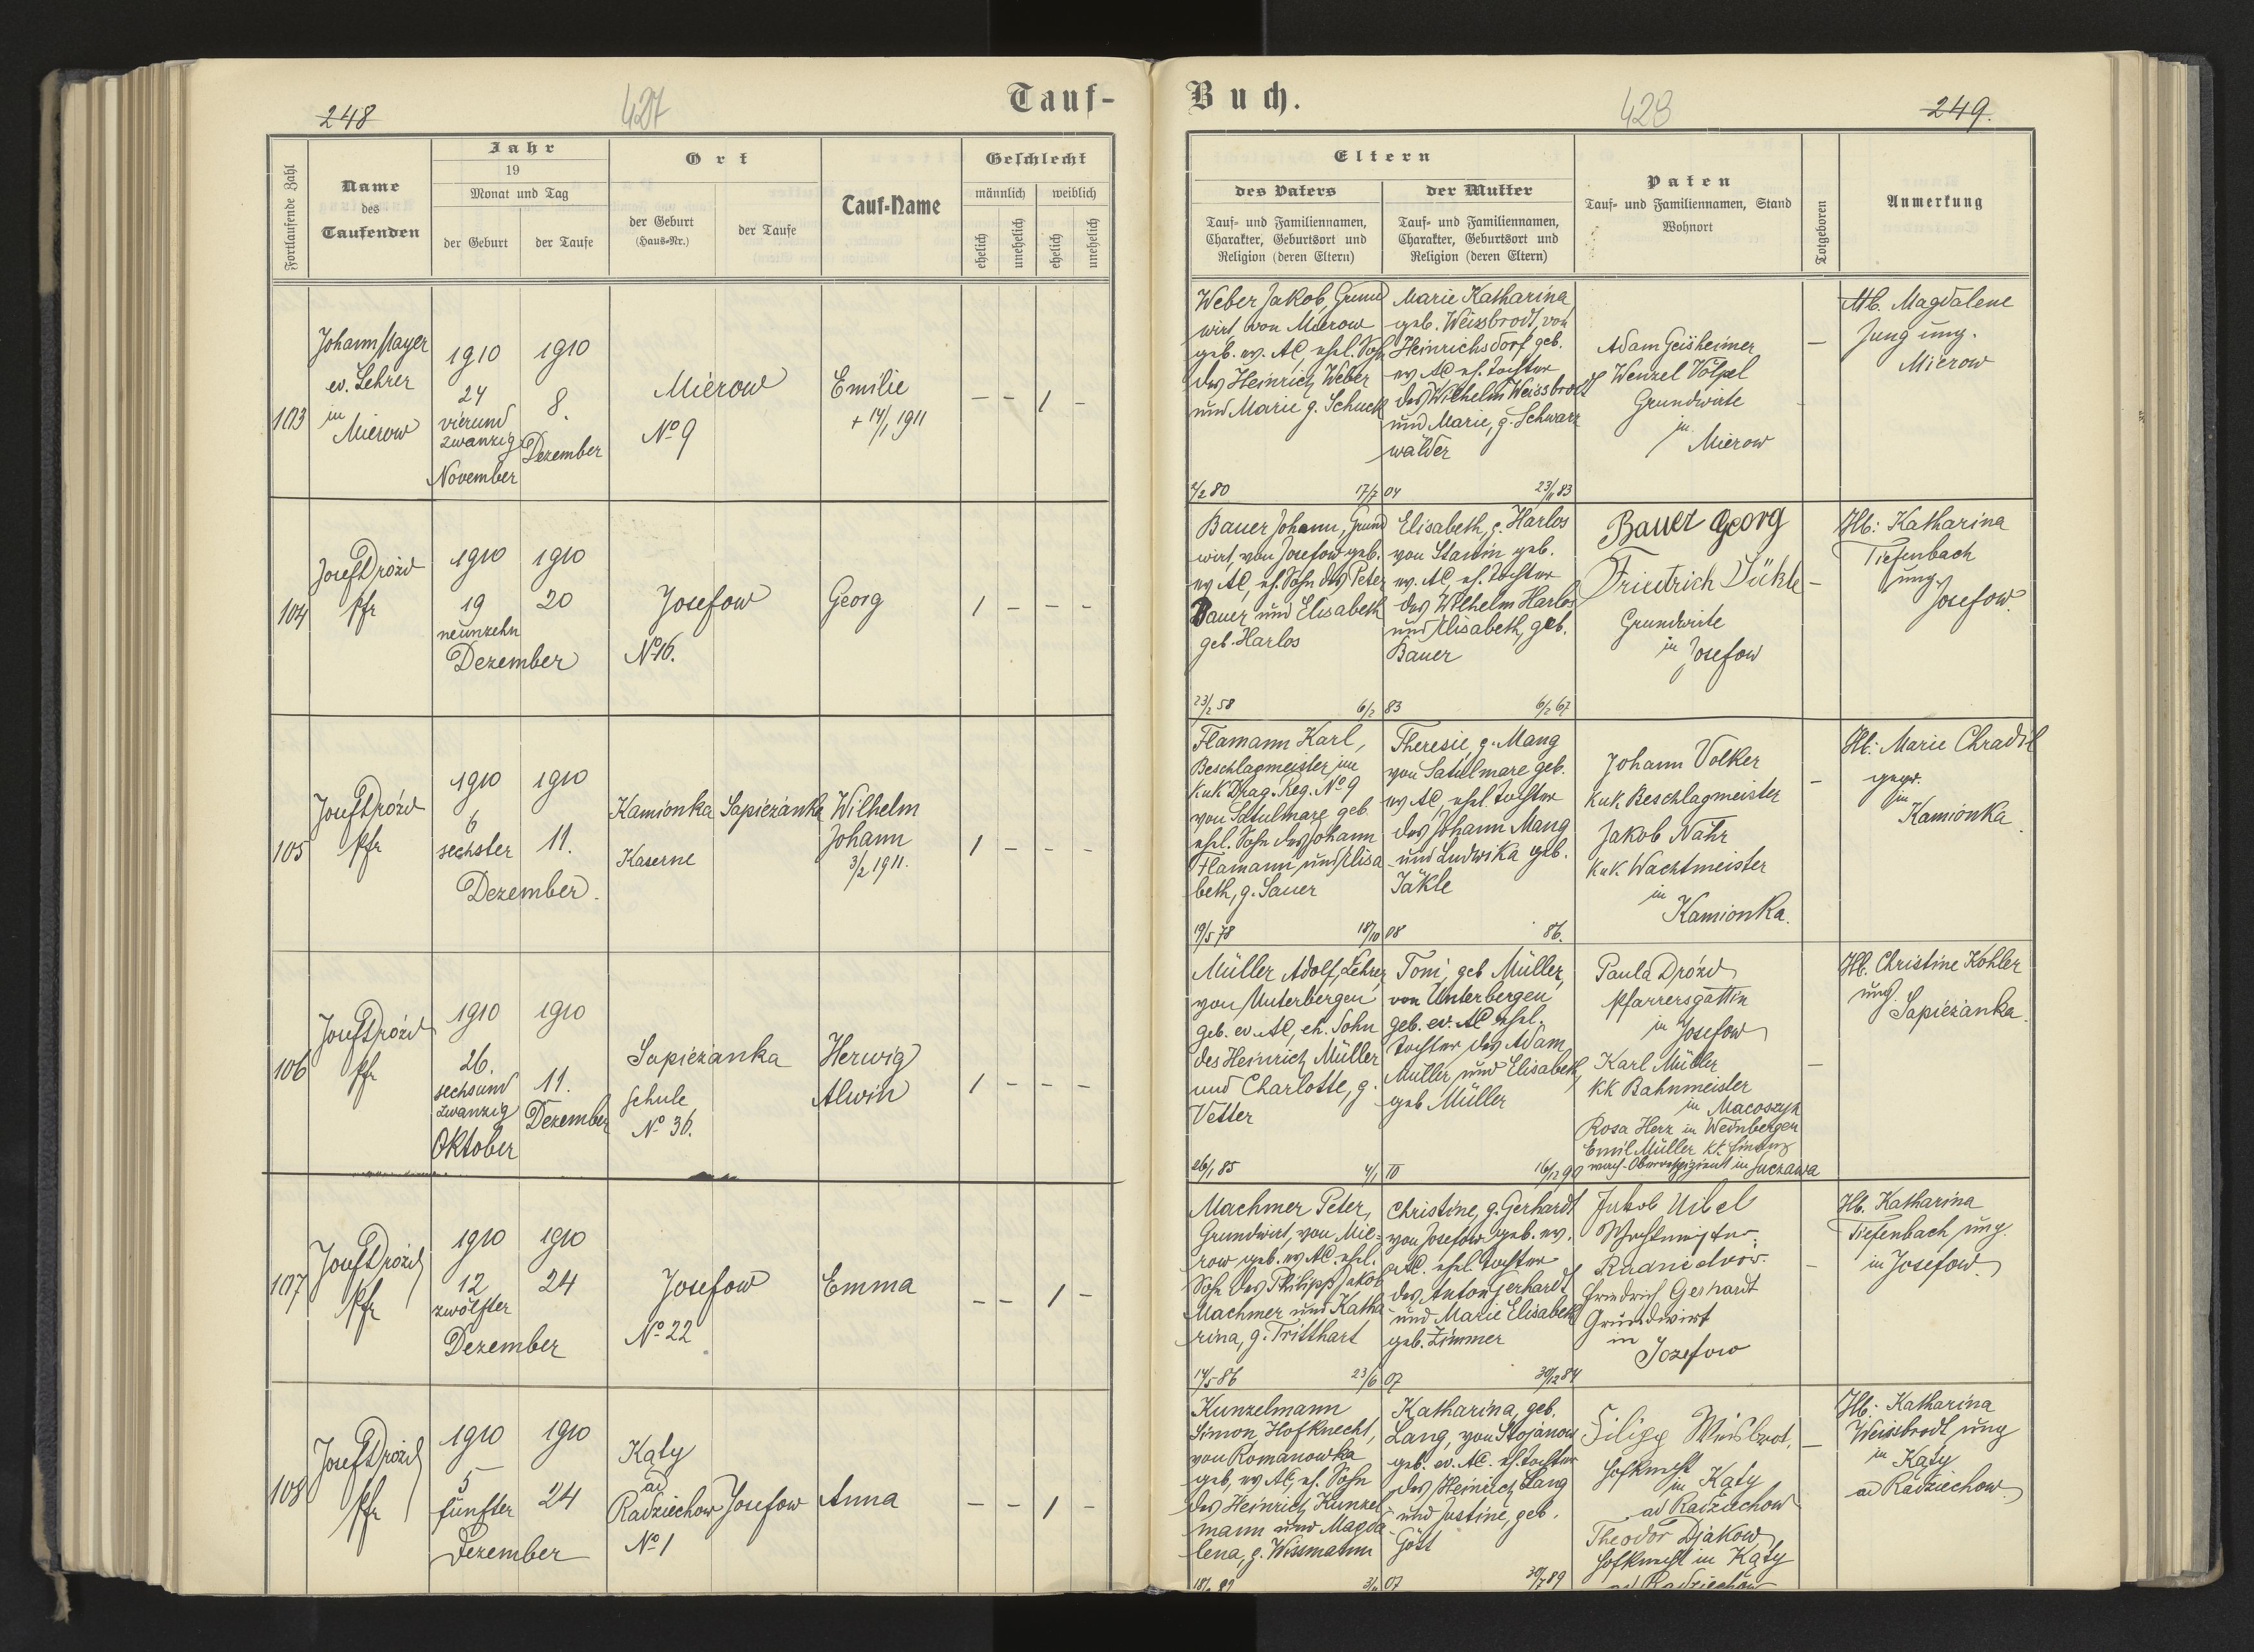 248
427
Tauf-
Fortlaufende Zahl
Name
des
Taufenden
Jahr
19
Monat und Tag
der Geburt
der Taufe
Ort
der Geburt
(Haus-Nr.)
der Taufe
Tauf-Name
Geschlecht
männlich
weiblich
ehelich
unehelich
ehelich
unehelich
103
Johann Mayer
ev. Lehrer
in
Mierow
1910
24
vierund
zwanzig
November
1910
8.
Dezember
Mierow
No 9
Emilie
+ 14/1 1911
– – 1 –
104
Josef Drózd
Pfr
1910
19
neunzehn
Dezember
1910
20
Josefow
No 16.
Georg
1 – – –
105
Josef Drózd
Pfr
1910
6
sechster
Dezember.
1910
11.
Kamionka Sapiezanka
Kaserne
Wilhelm
Johann
3/2 1911.
1 – – –
106
Josef Drózd
Pfr
1910
26.
sechsund
zwanzig
Oktober
1910
11.
Dezember
Sapiezanka
Schule
No 36.
Herwig
Alwin
1 – – –
107
Josef Drózd
Pfr
1910
12
zwölfter
Dezember
1910
24
Josefow
No 22
Emma
– – 1 –
108
Josef Drózd
Pfr
1910
5
fünfter
Dezember
1910
24
Kąty
ad
Radziechow
No 1
Josefow
Anna
– – 1 –
Buch.
428
249.
Eltern
des Vaters
Tauf- und Familiennamen,
Charakter, Geburtsort und
Religion (deren Eltern)
der Mutter
Tauf- und Familiennamen,
Charakter, Geburtsort und
Religion (deren Eltern)
Paten
Tauf- und Familiennamen, Stand
Wohnort
Totgeboren
Anmerkung
Weber Jakob, Grund
wirt von Mierow
geb. ev. AC, ehel. Sohn
des Heinrich Weber
und Marie g. Schuck
2/2 80
17/7 04
Marie Katharina
geb. Weissbrodt, von
Heinrichsdorf geb.
ev AC eh. Tochter
des Wilhelm Weissbrodt
und Marie, g. Schwarz
wälder
23/11 83
Adam Geisheimer
Wenzel Völpel
Grundwirte
in
Mierow
–
Hb. Magdalene
Jung ung.
Mierow
Bauer Johann, Grund
wirt, von Josefow geb.
ev AC, eh. Sohn des Peter
Bauer und Elisabeth
geb. Harlos
23/2 58
6/2 83
Elisabeth, g. Harlos
von Stanin geb.
ev. AC, eh. Tochter
des Wilhelm Harlos
und Elisabeth, geb.
Bauer
6/2 67
Bauer Georg
Friedrich Jükle
Grundwirte
in Josefow
–
Hb: Katharina
Tiefenbach
ung.
Josefow.
Flamann Karl,
Beschlagmeister im
KuK Drag. Reg. No 9
von Satulmare geb.
ehel. Sohn des Johann
Flamann und Elisa
beth, g. Sauer
19/5 78
18/10 08
Theresie, g. Mang
von Satulmare geb.
ev AC, ehel. Tochter
des Johann Mang
und Ludwika geb.
Jäkle
86.
Johann Volker
KuK Beschlagmeister
Jakob Nähr
KuK Wachtmeister
in
Kamionka.
–
Hb: Marie Chradil
gepr.
in
Kamionka.
Müller Adolf, Lehrer,
von Unterbergen
geb. ev. AC, eh. Sohn
des Heinrich Müller
und Charlotte, g.
Vetter
26/1 85
4/1 10
Toni, geb Müller,
von Unterbergen
geb. ev. AC ehel.
Tochter des Adam
Müller und Elisabeth,
geb Müller
16/12 90
Paula Drózd
Pfarrersgattin
in Josefow
Karl Müller
KK Bahnmeister
in Macoszyn
Rosa Herz in Weinbergen
Emil Müller
in Suczawa
–
Hb. Christine Kohler
ung.
Sapiezanka.
Machmer Peter,
Grundwirt, von Mie-
row geb. ev AC. ehel.
Sohn des Philipp Jakob
Machmer und Katha
rina, g. Tritthart
14/5 86
23/6 07
Christine, g. Gerhardt
von Josefow geb. ev.
AC. ehel. Tochter
des Anton Gerhardt
und Marie Elisabeth
geb. Zimmer
30/12 84
Jakob Uibel
Wachtmeister
Rudnie dwór.
Friedrich Gerhardt
Grundwirt
in
Jozefow
–
Hb. Katharina
Tiefenbach ung.
in Josefow.
Kunzelmann
Simon, Hofknecht,
von Romanowka
geb, ev AC, eh. Sohn
des Heinrich Kunzel
mann und Magda
lena, g. Wissmann
07
Katharina, geb.
Lang, von Stojanow
geb. ev. AC. eh. Tochter
des Heinrich Lang
und Justine, geb.
Gött
30/7 89
Filipp Weisbrot,
Hofknecht
in Kąty
ad Radziechow
Theodor Djakow
Hofknecht in Kąty
ad Radziechow
–
Hb: Katharina
Weissbrodt ung
in Kąty
ad Radziechow.